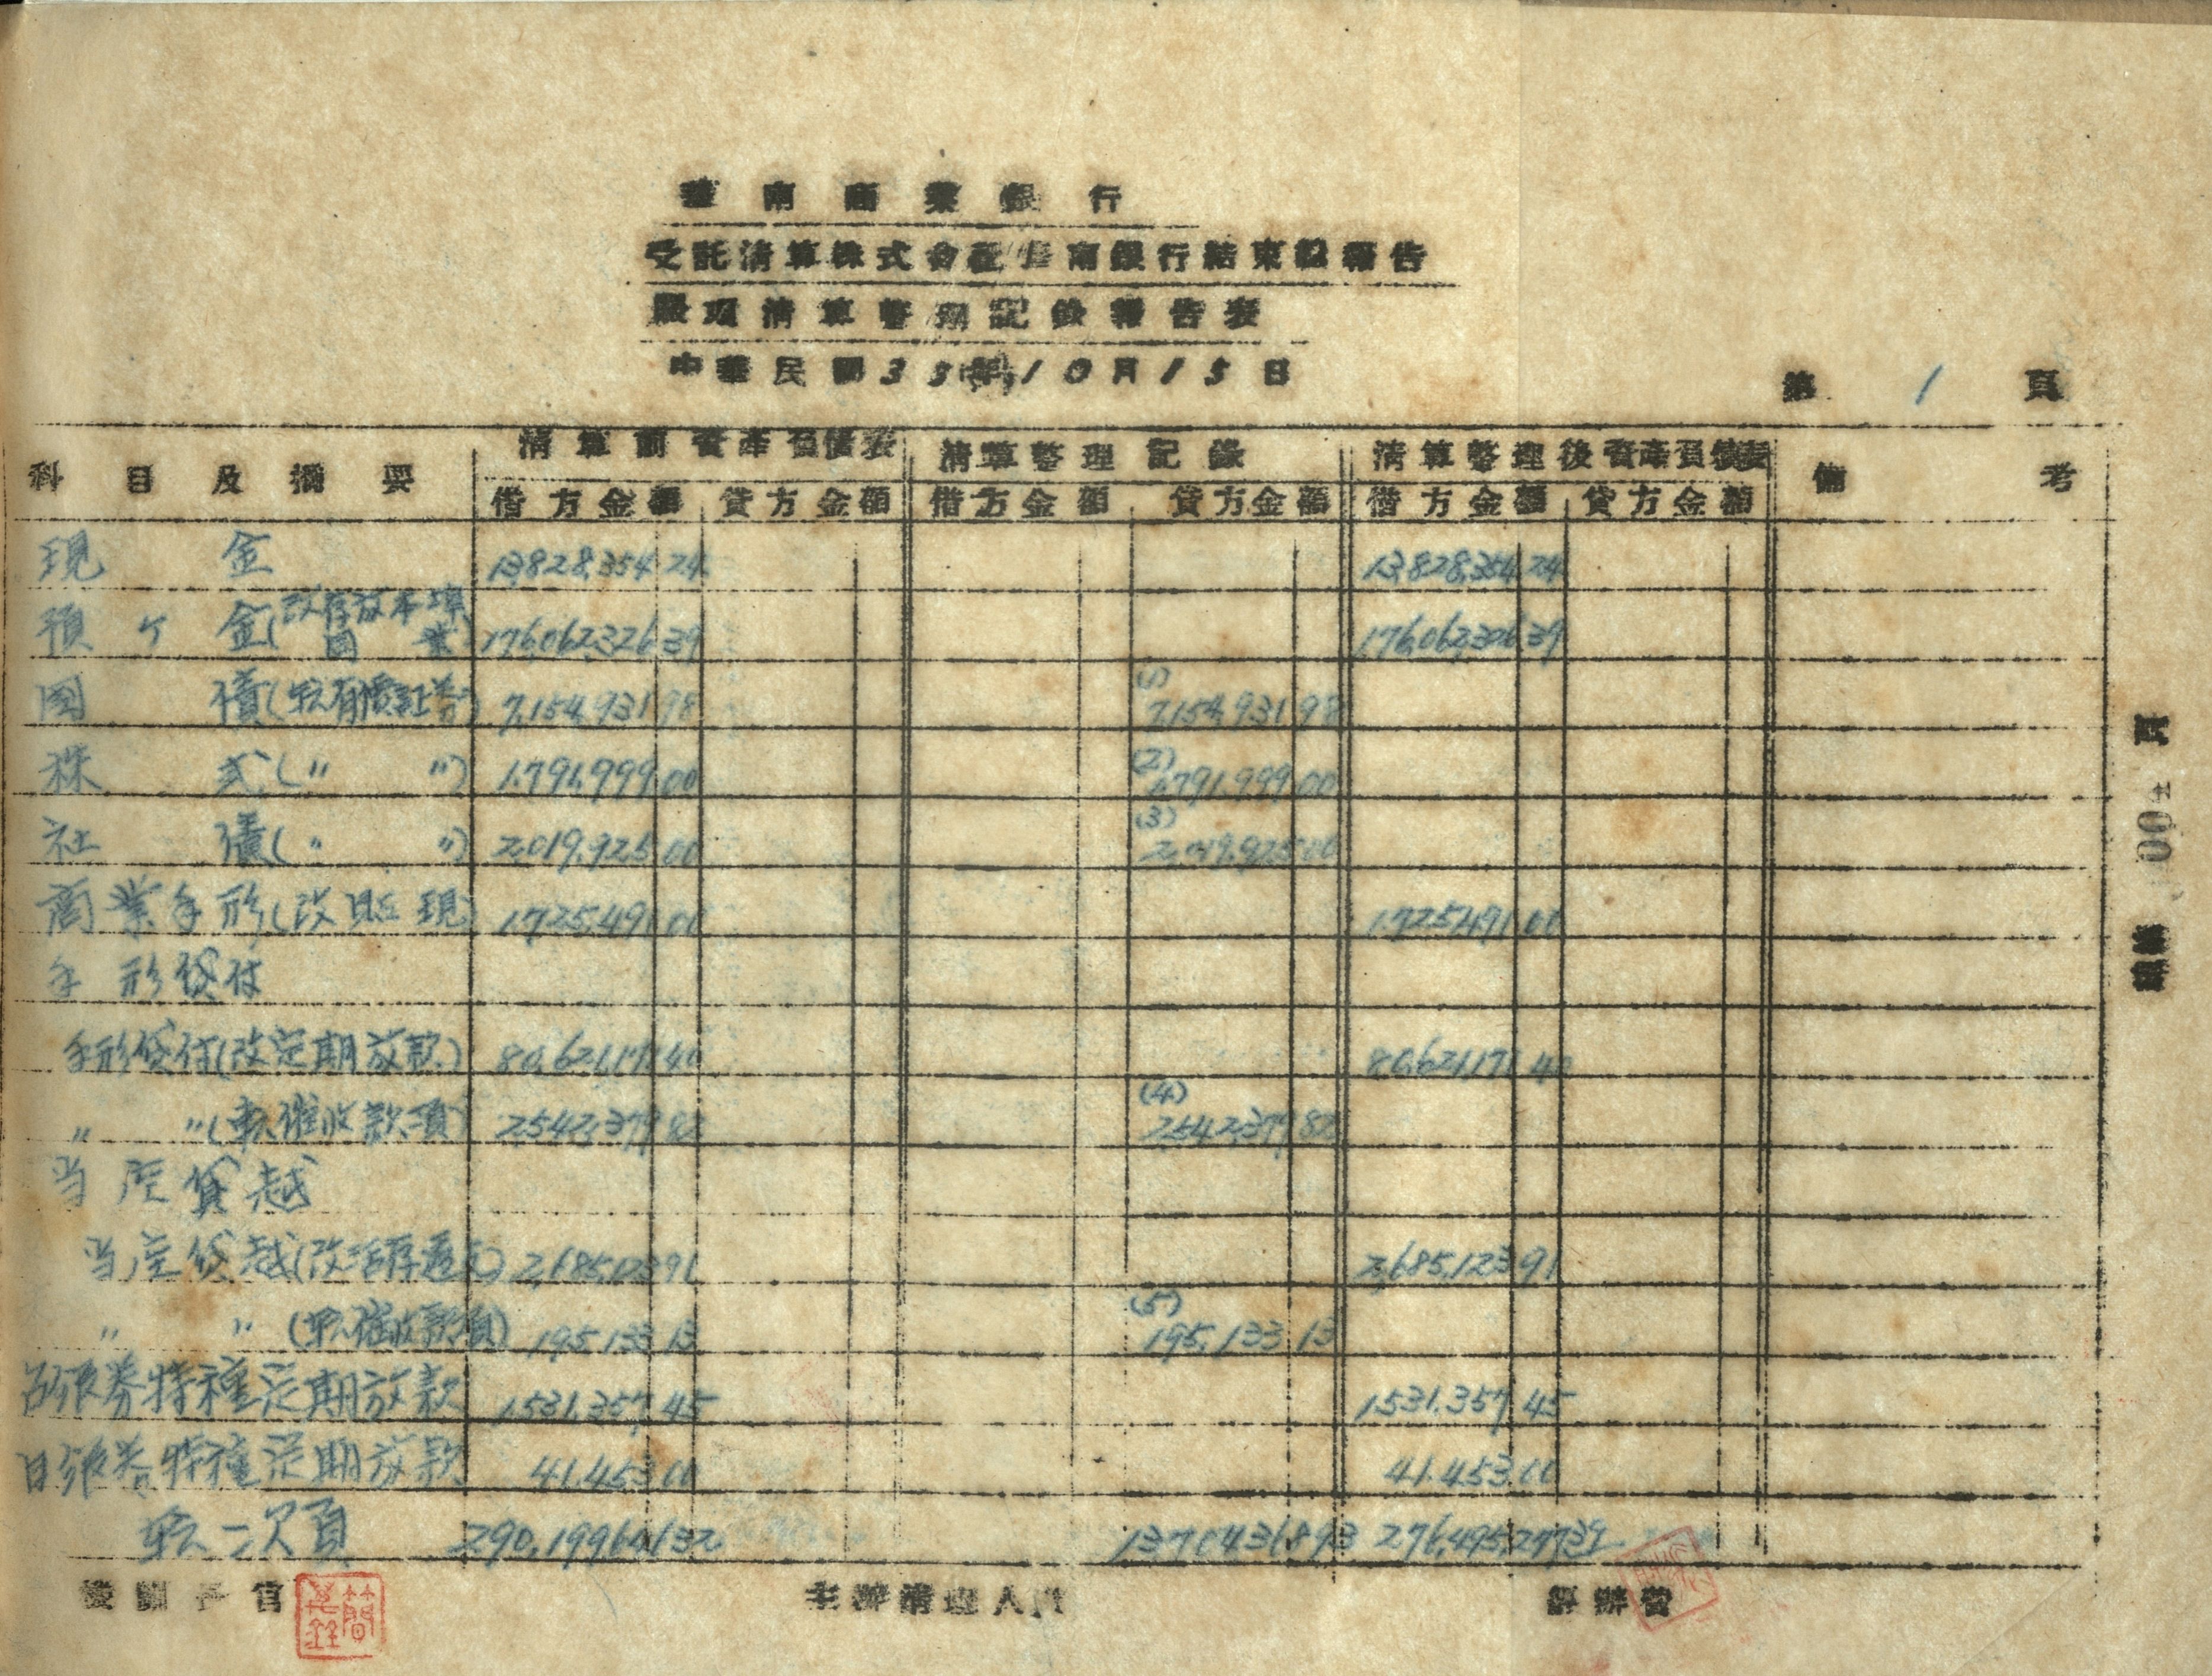 華南商業銀行
受託清算株式會社華南銀行結束總報告
賬項清算整理記錄報告表
中華民國35年10月15日
第 1 頁
科目及摘要 清算前資產負債表 清算整理記錄 清算整理後資產負債表 備考
借方金額 貸方金額 借方金額 貸方金額 借方金額 貸方金額
現金 13,828,354.24 13,828,354.24
預ヶ金(改存放本埠同業 176,062,326.39 176,062,326.39
國債(転有價証券) 7,154,931.98 (1) 7,154,931.98
株式(〃 〃) 1,791,999.00 (2) 1,791,999.00
社債(〃 〃) 2,019,925.00 (3) 2,019,925.00
商業手形(改貼現) 1,725,491.00 1,725,491.00
手形貸付
手形貸付(改定期放款) 80,621,171.40 80,621,171.40
〃 〃(転催收款項) 2,542,379.82 (4) 2,542,379.82
当座貸越
当座貸越(改活存透支) 2,685,123.91 2,685,123.91
〃 〃 (転催收款項) 195,133.13 (5) 195,133.13
台銀券特種定期放款 1,531,357.45 1,531,357.45
日銀券特種定期放款 41,453.00 41,453.00
転二次頁 290,199,646.32 13,704,368.93 276,495,277.39
主辦清理人員
簡